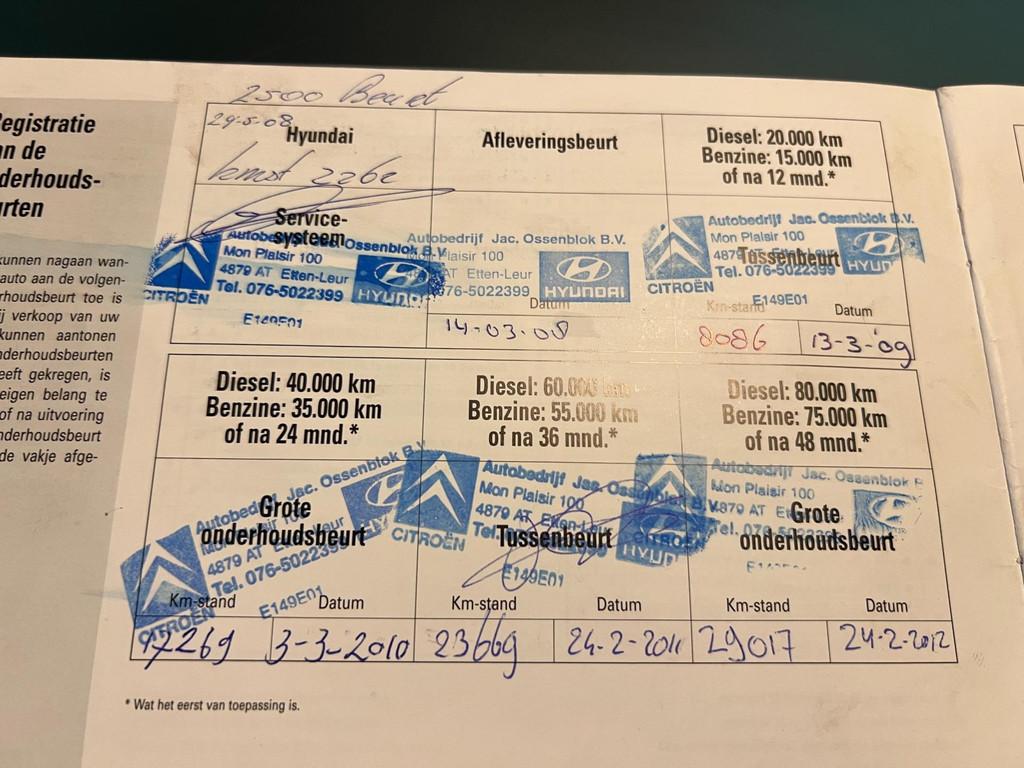 2500 Beurt
29-5-08
Hyundai
Service-
systeem
Autobedrijf Jac. Ossenblok B.V.
Mon Plaisir 100
4879 AT Etten-Leur
Tel. 076-5022399
CITROËN
HYUNDAI
E149E01
Afleveringsbeurt
Autobedrijf Jac. Ossenblok B.V.
Mon Plaisir 100
AT Etten-Leur
076-5022399
HYUNDAI
Datum
14-03-08
Diesel: 20.000 km
Benzine: 15.000 km
of na 12 mnd.*
Tussenbeurt
Autobedrijf Jac. Ossenblok B.V.
Mon Plaisir 100
4879
Tel. 076-5022399
CITROËN
HYUN
E149E01
Km-stand
Datum
8086
13-3-'09
Diesel: 40.000 km
Benzine: 35.000 km
of na 24 mnd.*
Grote
onderhoudsbeurt
Autobedrijf Jac. Ossenblok B.V.
4879 AT
Tel. 076-5022399
CITROËN
E149E01
Km-stand
Datum
17269
3-3-2010
Diesel: 60.000 km
Benzine: 55.000 km
of na 36 mnd.*
Tussenbeurt
Autobedrijf Jac. Ossenblok B.V.
Mon Plaisir 100
4879 AT Etten-Leur
CITROËN
HYUND
E149E01
Km-stand
Datum
23669
24-2-2011
Diesel: 80.000 km
Benzine: 75.000 km
of na 48 mnd.*
Grote
onderhoudsbeurt
Autobedrijf Jac. Ossenblok
Mon Plaisir 100
4879 AT
Tel. 076
Km-stand
Datum
29017
24-2-2012
* Wat het eerst van toepassing is.
Registratie
an de
derhouds-
urten
kunnen nagaan wan-
auto aan de volgen-
rhoudsbeurt toe is
ij verkoop van uw
kunnen aantonen
nderhoudsbeurten
eeft gekregen, is
eigen belang te
of na uitvoering
nderhoudsbeurt
de vakje afge-